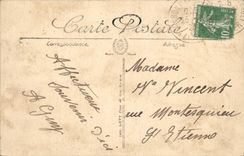 Carte Postale
Correspondance
Adresse
10
Affectueux
Souvenir d'ici
A Guy
Madame
Mme Vincent
rue Montesquieu
St Etienne